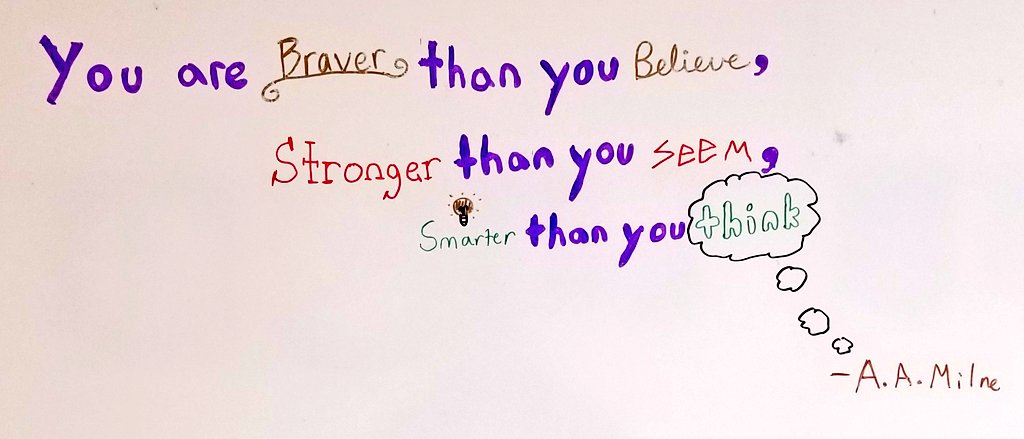 You are Braver than you Believe,
Stronger than you SEEM,
Smarter than you think
- A.A. Milne